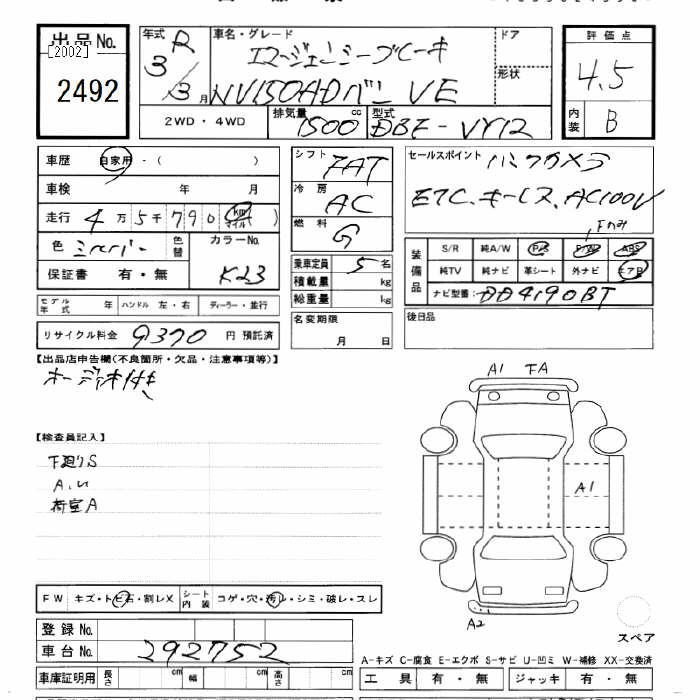 出品No.
[2002]
2492
年式 R 3/3月
車名・グレード エマージェンシーブレーキ
NV150ADバン VE
ドア
形状
2WD・4WD
排気量 1500 cc
型式 DBF-VY12
評価点
4.5
内装 B
車歴 自家用・( )
車検 年 月
走行 4万5千790 km マイル
色 シルバー 色替
カラーNo. K23
保証書 有・無
モデル年式 年 ハンドル 左・右 ディーラー・並行
リサイクル料金 9370 円 預託済
シフト FAT
冷房 AC
燃料 G
乗車定員 5 名
積載量 kg
総重量 kg
名変期限 月 日
セールスポイント バックカメラ
ETC、キーレス、AC100V
Fのみ
装備品 S/R 純A/W P/S P/W ABS
純TV 純ナビ 革シート 外ナビ エアB
ナビ型番: DD4190BT
後日品
【出品店申告欄(不良箇所・欠品・注意事項等)】
オーディオ付き
【検査員記入】
下廻りS
A.
荷室A
A1
A1
A2
スペア
FW キズ・トビ石・割レX シート内装 コゲ・穴・汚レ・シミ・破レ・スレ
登録No.
車台No. 292752
車庫証明用 長さ cm 幅 cm 高さ cm
A-キズ C-腐食 E-エクボ S-サビ U-凹ミ W-補修 XX-交換済
工具 有・無 ジャッキ 有・無